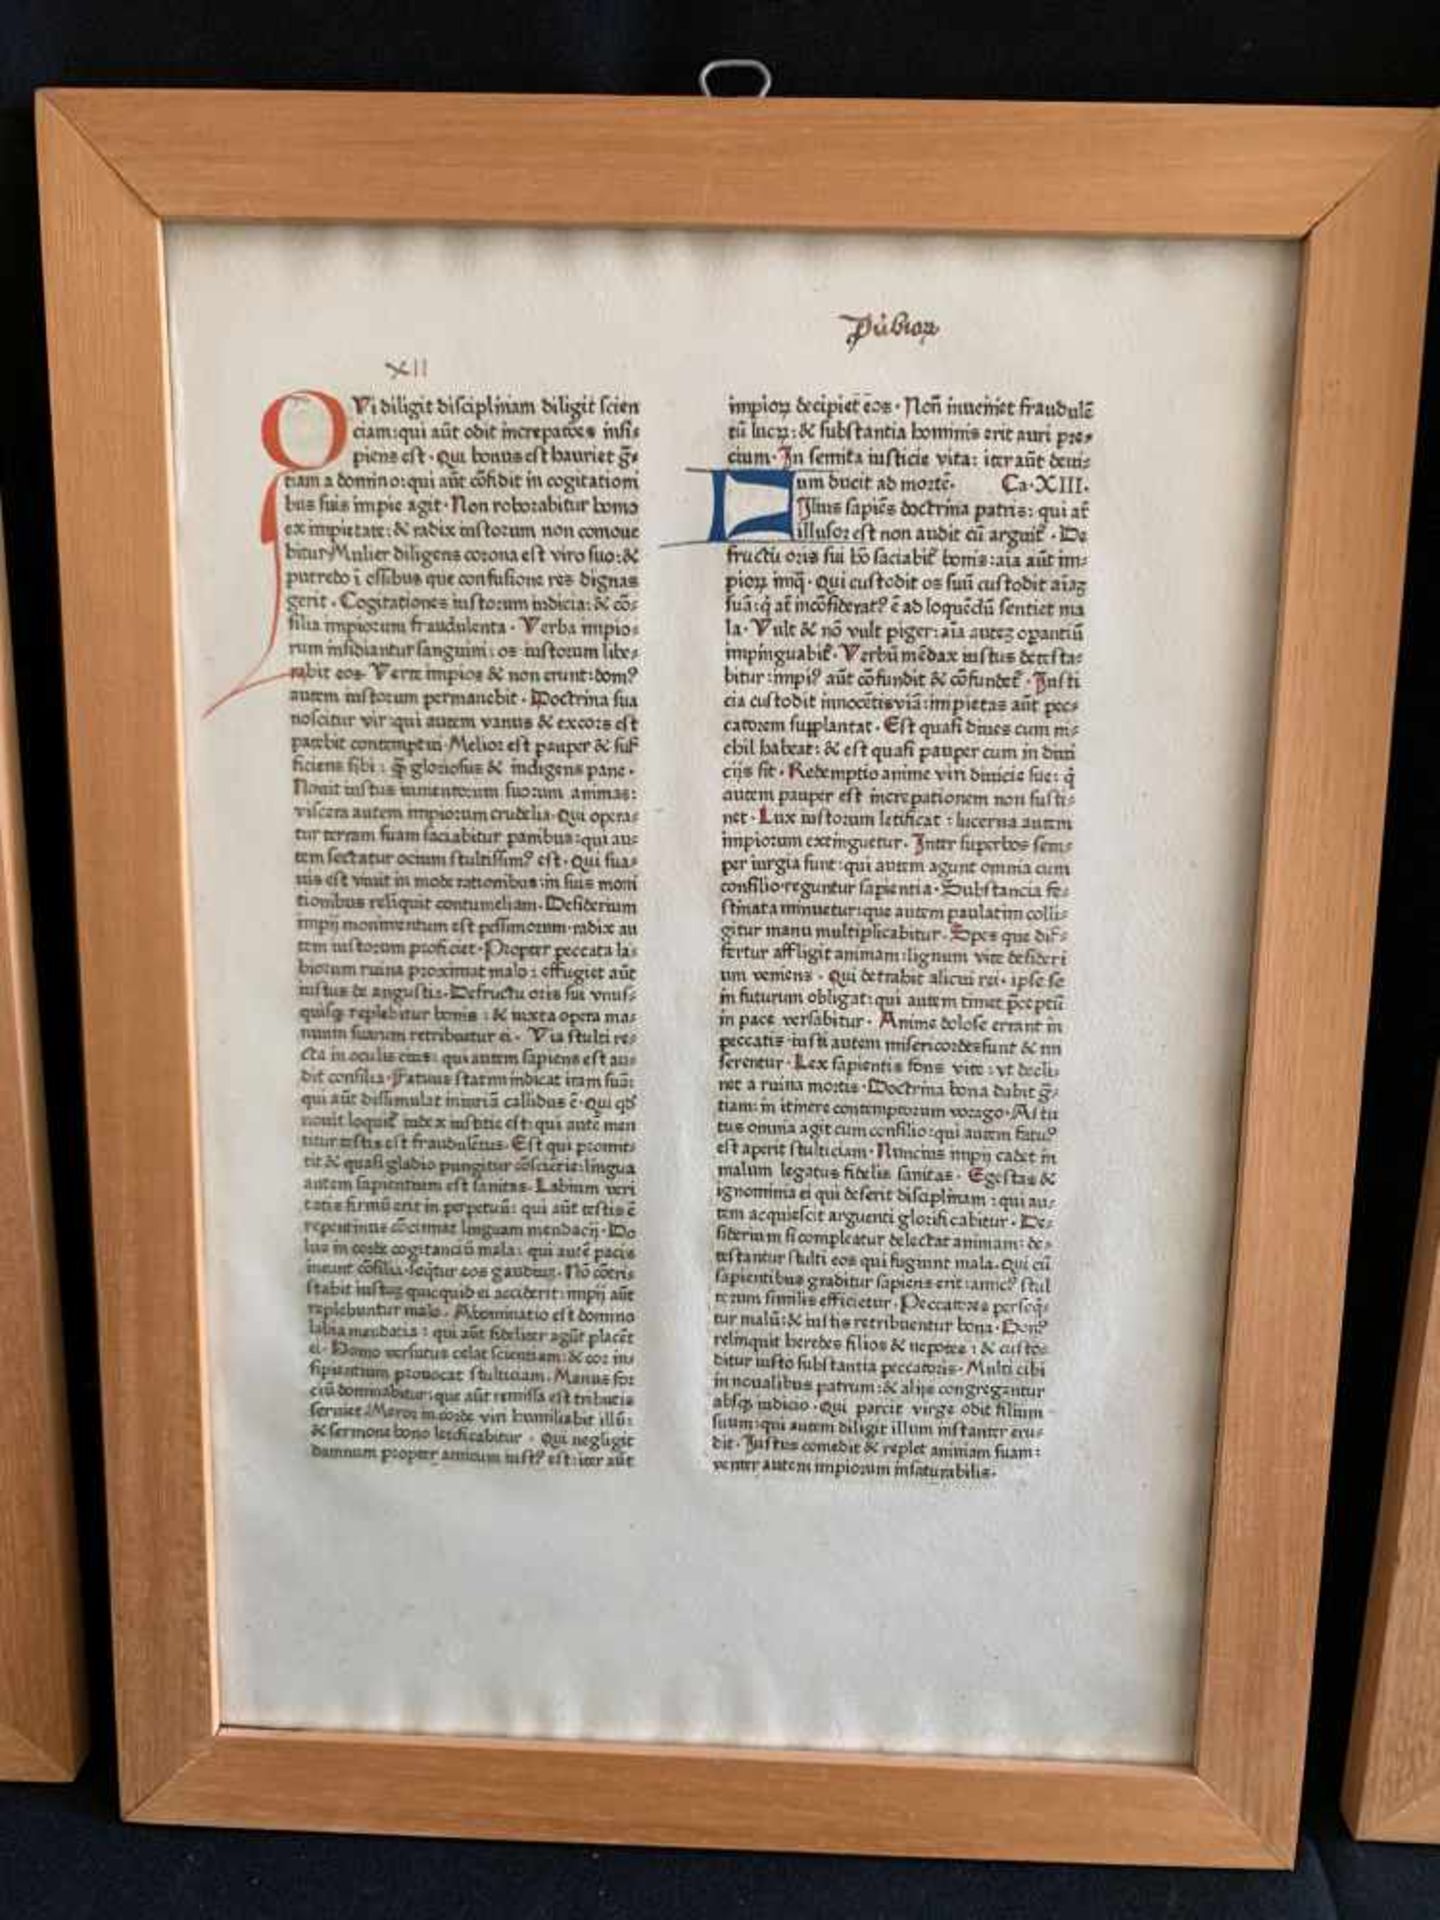 XII
OVi diligit disciplinam diligit scien
ciam:qui aūt odit increpatōes insi⸗
piens est. Qui bonus est hauriet gr̄⸗
tiam a domino:qui aūt cōfidit in cogitationi
bus suis impie agit. Non roborabitur homo
ex impietate:& radix iustorum non comoue
bitur. Mulier diligens corona est viro suo:&
putredo i ossibus que confusione res dignas
gerit. Cogitationes iustorum iudicia:& cō⸗
silia impiorum fraudulenta. Verba impio⸗
rum insidiantur sanguini:os iustorum libe⸗
rabit eos. Verte impios & non erunt:domꝰ
autem iustorum permanebit. Doctrina sua
noscitur vir:qui autem vanus & excors est
patebit contemptui. Melior est pauper & suf
ficiens sibi: q̄ gloriosus & indigens pane.
Nouit iustus iumentorum suorum animas:
viscera autem impiorum crudelia. Qui opera⸗
tur terram suam saciabitur panibus:qui au⸗
tem sectatur ocium stultissimꝰ est. Qui sua⸗
uis est viuit in mode rationibus:in suis moni
tionibus relīquit contumeliam. Desiderium
impij monimentum est pessimorum. radix au
tem iustorum proficiet. Propter peccata la⸗
biorum ruina proximat malo: effugiet aūt
iustus de angustia. De fructu oris sui vnus⸗
quisq; replebitur bonis: & iuxta opera ma⸗
nuum suarum retribuetur ei. Via stulti re⸗
cta in oculis eius: qui autem sapiens est au⸗
dit consilia. Fatuus statim indicat iram suā:
qui aūt dissimulat iniuriā callidus ē. Qui qd̄
nouit loquit̄ iudex iusticie est: qui autē men
titur testis est fraudulētus. Est qui promit⸗
tit & quasi gladio pungitur cōsciētie:lingua
autem sapientium est sanitas. Labium veri
tatis firmū erit in perpetuū: qui aūt testis ē
repentinus cōcinnat linguam mendacij. Do
lus in corde cogitanciū mala: qui autē pacis
ineunt cōsilia seq̄tur eos gaudiuꝫ. Nō cōtris
stabit iustuꝫ quicquid ei acciderit: impij aūt
replebuntur malo. Abominatio est domino
labia mendacia: qui aūt fideliter agūt placēt
ei. Homo versutus celat scientiam: & cor in⸗
sipientium prouocat stulticiam. Manus for
ciū dominabitur:que aūt remissa est tributis
seruiet. Meror in corde viri humiliabit illū:
& sermone bono letificabitur. Qui negligit
damnum propter amicum iustꝰ est:iter aūt
impioꝝ decipiet eos. Non inueniet fraudulē
tū lucꝝ: & substantia hominis erit auri pre⸗
cium. In semita iusticie vita: iter aūt deui⸗
um ducit ad mortē. Ca. XIII.
Filius sapiēs doctrina patris: qui at̄
illusor est non audit cū arguit̄. De
fructu oris sui hō saciabit̄ bonis:aīa aūt im⸗
pioꝝ iniq̄. Qui custodit os suū custodit aīaꝫ
suā:q̄ at̄ incōsideratꝰ ē ad loquēdū sentiet ma
la. Vult & nō vult piger:aīa auteꝫ operantiū
impinguabit̄. Verbū mēdax iustus detesta⸗
bitur:impiꝰ aūt cōfundit & cōfundet̄. Iusti
cia custodit innocētis viā:impietas aūt pec⸗
catorem supplantat. Est quasi diues cum ni⸗
chil habeat: & est quasi pauper cum in diui
cijs sit. Redemptio anime viri diuicie sue: q̄
autem pauper est increpationem non susti⸗
net. Lux iustorum letificat: lucerna autem
impiorum extinguetur. Inter superbos sem⸗
per iurgia sunt:qui autem agunt omnia cum
consilio reguntur sapientia. Substancia fe⸗
stinata minuetur:que autem paulatim colli⸗
gitur manu multiplicabitur. Spes que dif⸗
fertur affligit animam:lignum vite desideri
um veniens. Qui detrahit alicui rei. ipse se
in futurum obligat:qui autem timet p̄ceptū
in pace versabitur. Anime dolose errant in
peccatis iusti autem misericordes sunt & mi
serentur. Lex sapientis fons vite: vt decli⸗
net a ruina mortis. Doctrina bona dabit gr̄⸗
tiam: in itinere contemptorum vorago. Astu
tus omnia agit cum consilio:qui autem fatuꝰ
est aperit stulticiam. Nuncius impij cadet in
malum legatus fidelis sanitas. Egestas &
ignominia ei qui deserit disciplinam: qui au⸗
tem acquiescit arguenti glorificabitur. De⸗
siderium si compleatur delectat animam: de⸗
testantur stulti eos qui fugiunt mala. Qui cū
sapientibus graditur sapiens erit: amicꝰ stul
torum similis efficietur. Peccatores perseq̄⸗
tur malū:& iustis retribuentur bona. Bonꝰ
relinquit heredes filios & nepotes: & custo⸗
ditur iusto substantia peccatoris. Multi cibi
in noualibus patrum:& alijs congregantur
absq; iudicio. Qui parcit virge odit filium
suum:qui autem diligit illum instanter eru⸗
dit. Iustus comedit & replet animam suam:
venter autem impiorum insaturabilis.